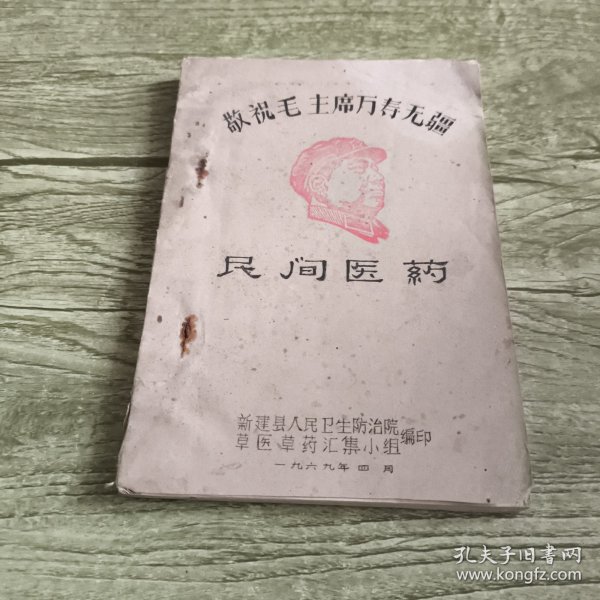 敬祝毛主席万寿无疆
民间医药
新建县人民卫生防治院
草医草药汇集小组
编印
一九六九年四月
孔夫子旧书网
www.kongfz.com